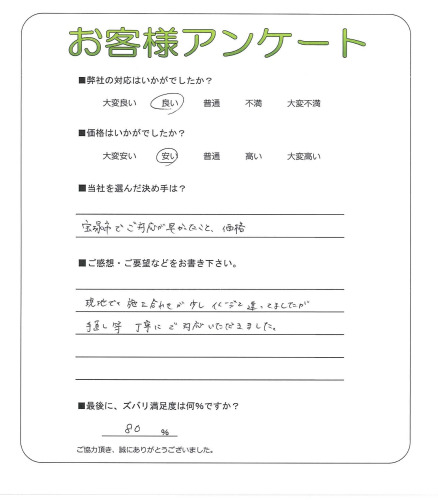 お客様アンケート
■弊社の対応はいかがでしたか？
大変良い 良い 普通 不満 大変不満
■価格はいかがでしたか？
大変安い 安い 普通 高い 大変高い
■当社を選んだ決め手は？
宝塚市でご対応が早かったこと、価格
■ご感想・ご要望などをお書き下さい。
現地での 打ち合わせが少し イメージと違ってましたが
手直し等 丁寧に ご対応いただきました。
■最後に、ズバリ満足度は何%ですか？
80 %
ご協力頂き、誠にありがとうございました。